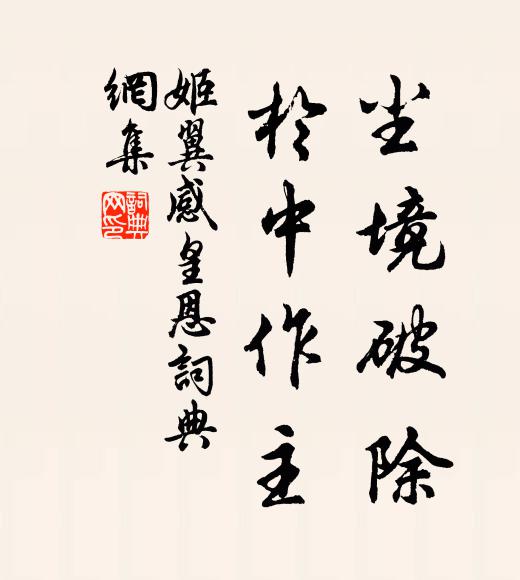 尘境破除
於中作主
姬翼感皇恩詞典
網集
詞典網印